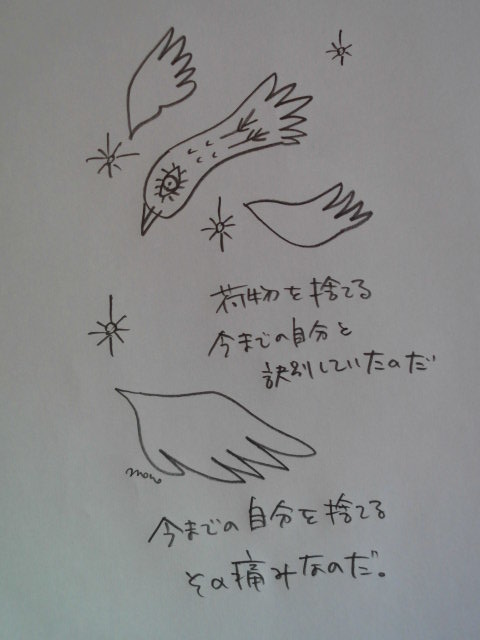 荷物を捨てる
今までの自分と
訣別していたのだ
mono
今までの自分を捨てる
その痛みなのだ。